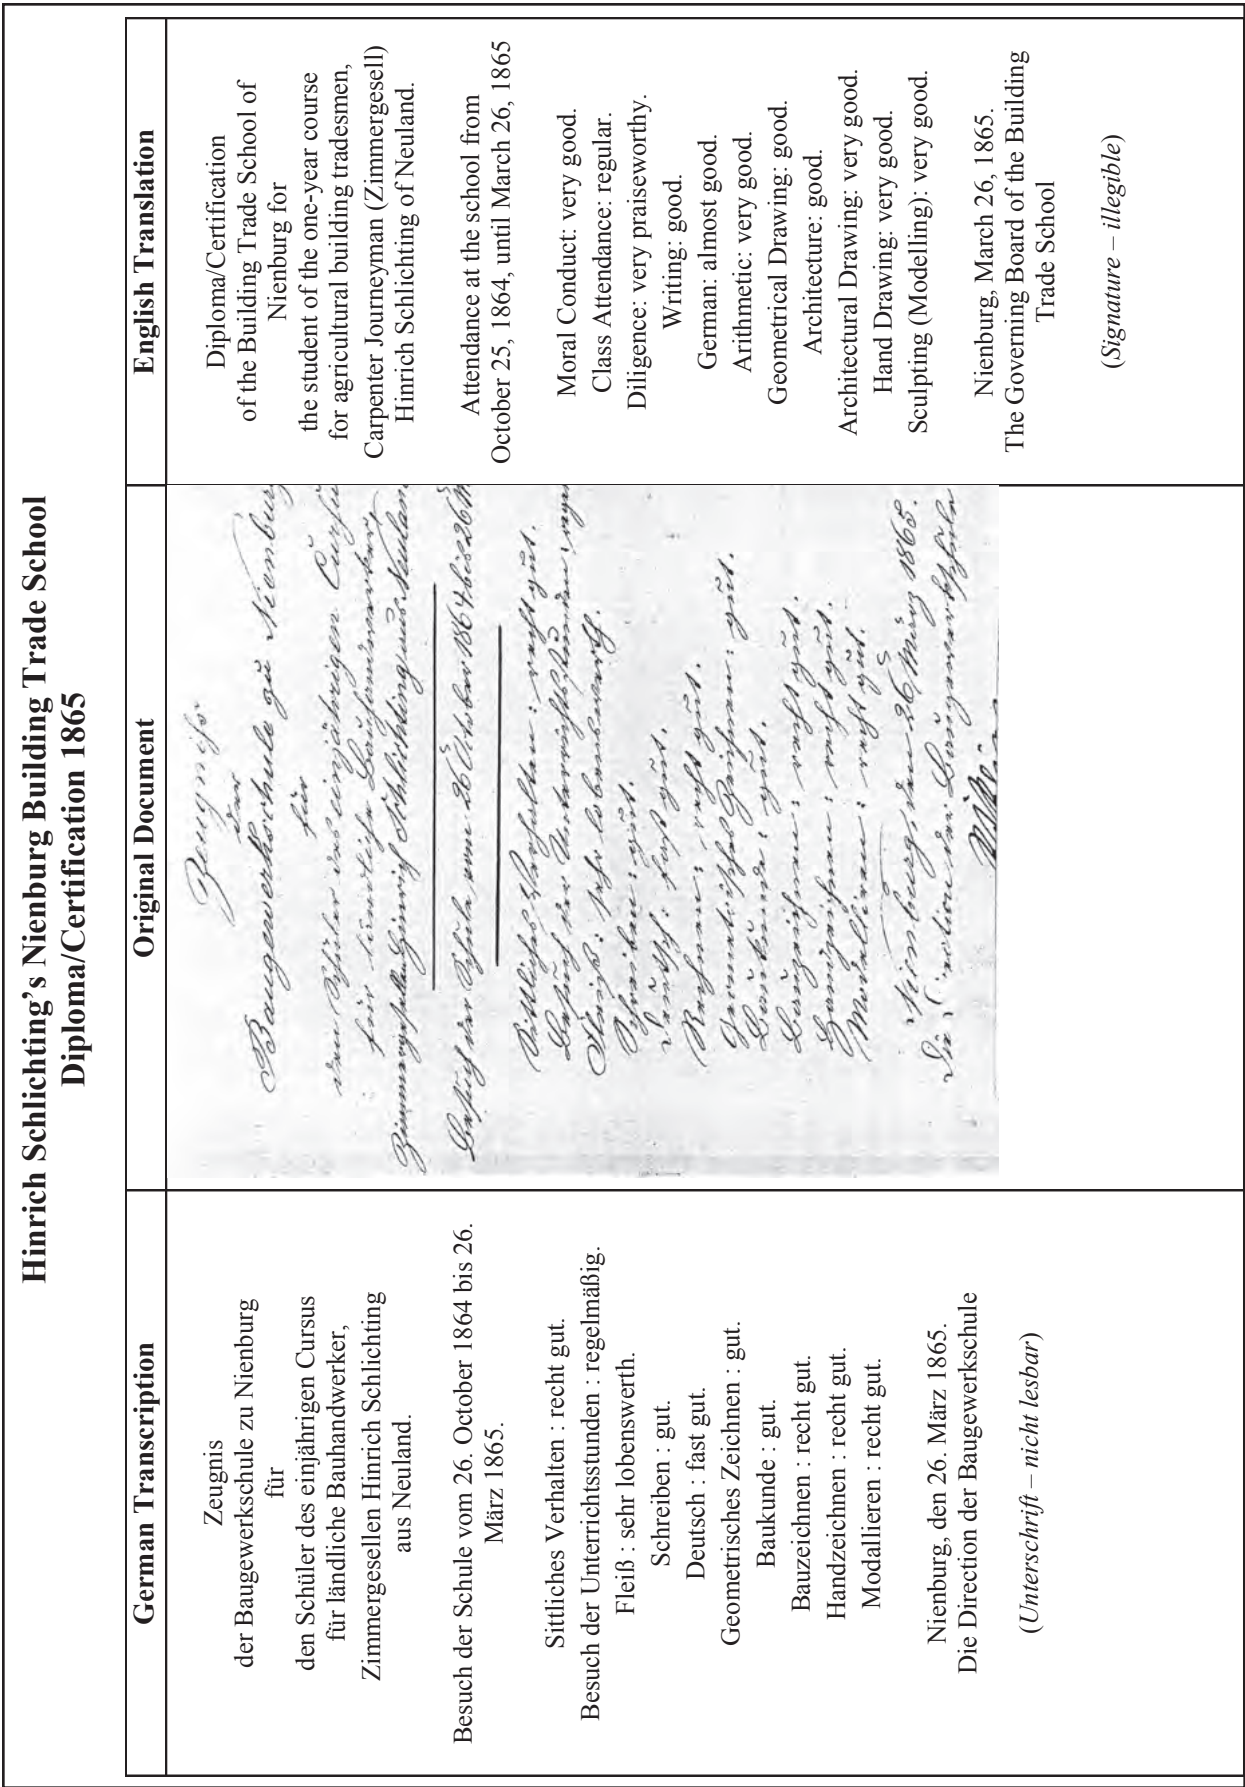 Hinrich Schlichting's Nienburg Building Trade School
Diploma/Certification 1865
German Transcription
Zeugnis
der Baugewerkschule zu Nienburg
für
den Schüler des einjährigen Cursus
für ländliche Bauhandwerker,
Zimmergesellen Hinrich Schlichting
aus Neuland.
Besuch der Schule vom 26. October 1864 bis 26.
März 1865.
Sittliches Verhalten : recht gut.
Besuch der Unterrichtsstunden : regelmäßig.
Fleiß : sehr lobenswerth.
Schreiben : gut.
Deutsch : fast gut.
Geometrisches Zeichnen : gut.
Baukunde : gut.
Bauzeichnen : recht gut.
Handzeichnen : recht gut.
Modallieren : recht gut.
Nienburg, den 26. März 1865.
Die Direction der Baugewerkschule
(Unterschrift – nicht lesbar)
Original Document
Zeugniß
der
Baugewerkschule zu Nienburg
für
den Schüler des einjährigen Cursu
für ländliche Bauhandwerker,
Zimmergesellen Hinrich Schlichting aus Neuland
Besuch der Schule vom 26 October 1864 bis 26 M
Sittliches Verhalten: recht gut.
Besuch der Unterrichtsstunden: regel
Fleiß: sehr lobenswerth.
Schreiben: gut.
Deutsch: fast gut.
Rechnen: recht gut.
Geometrisches Zeichnen: gut.
Baukunde: gut.
Bauzeichnen: recht gut.
Handzeichnen: recht gut.
Modelliren: recht gut.
Nienburg, den 26 März 1865.
Die Direction der Baugewerkschule
English Translation
Diploma/Certification
of the Building Trade School of
Nienburg for
the student of the one-year course
for agricultural building tradesmen,
Carpenter Journeyman (Zimmergesell)
Hinrich Schlichting of Neuland.
Attendance at the school from
October 25, 1864, until March 26, 1865
Moral Conduct: very good.
Class Attendance: regular.
Diligence: very praiseworthy.
Writing: good.
German: almost good.
Arithmetic: very good.
Geometrical Drawing: good.
Architecture: good.
Architectural Drawing: very good.
Hand Drawing: very good.
Sculpting (Modelling): very good.
Nienburg, March 26, 1865.
The Governing Board of the Building
Trade School
(Signature – illegible)